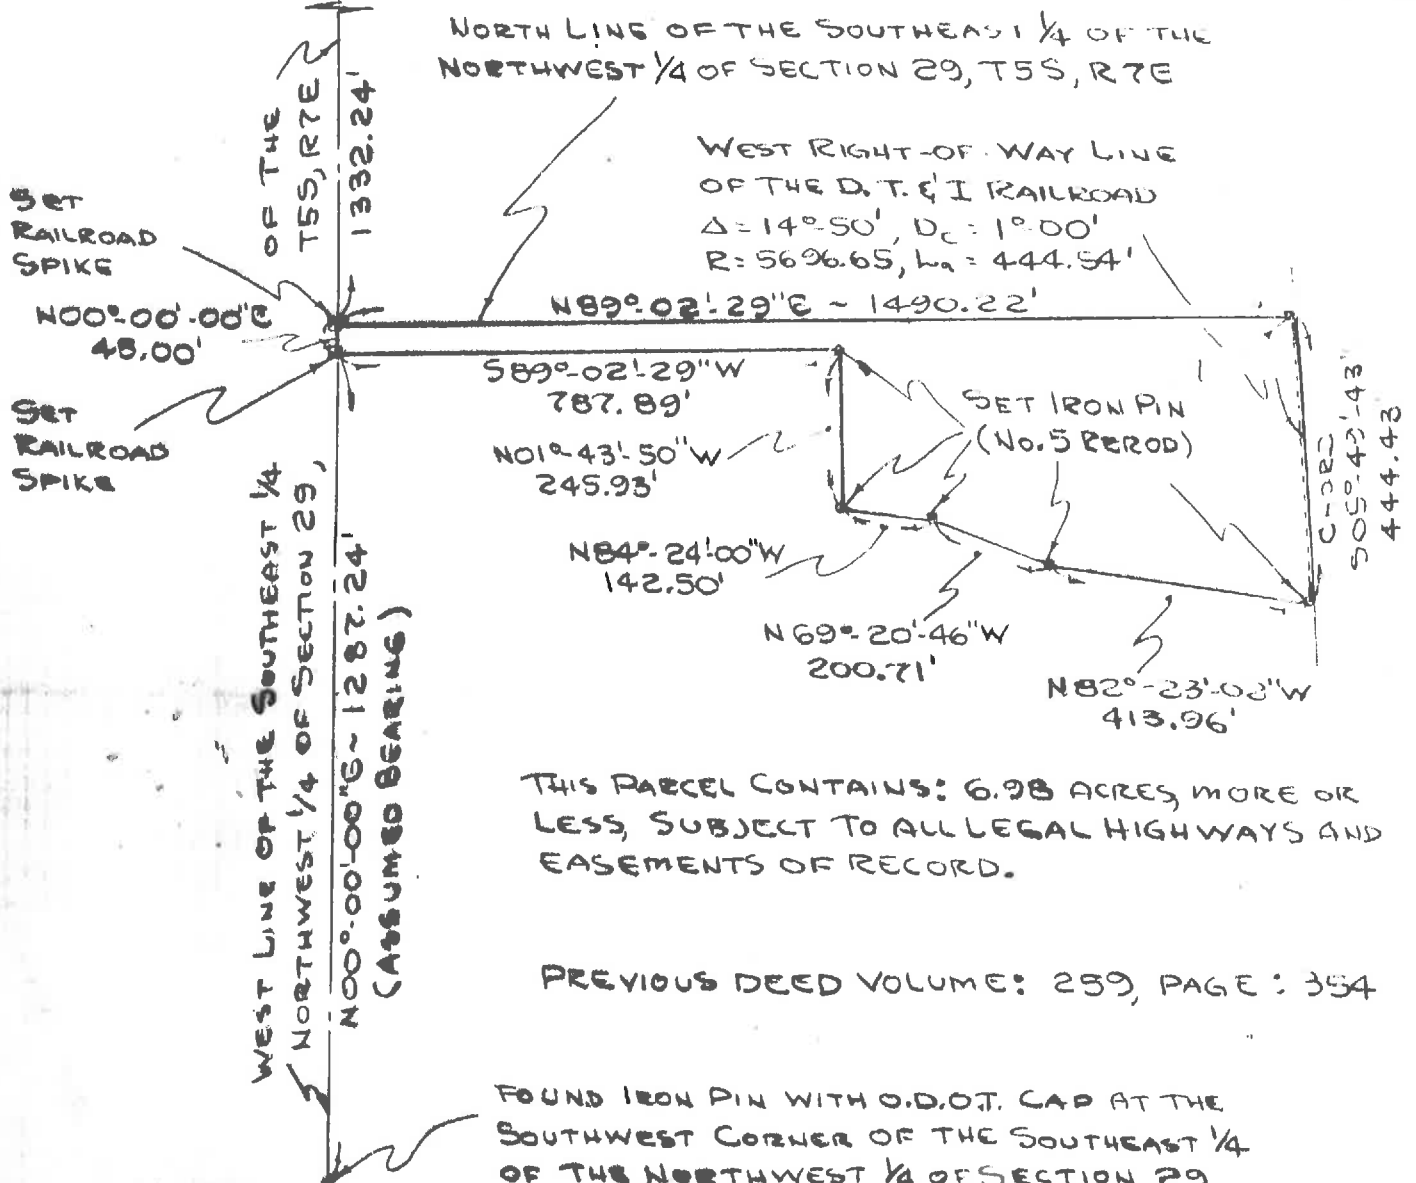 NORTH LINE OF THE SOUTHEAST 1/4 OF THE
NORTHWEST 1/4 OF SECTION 29, T5S, R7E
WEST RIGHT-OF-WAY LINE
OF THE D.T.& I RAILROAD
Δ=14°-50', Dc=1°-00'
R=5696.65, La=444.54'
OF THE
T5S, R7E
1332.24'
SET
RAILROAD
SPIKE
N00°-00'-00"E
45.00'
N89°-02'-29"E ~ 1490.22'
S89°-02'-29"W
787.89'
SET
RAILROAD
SPIKE
SET IRON PIN
(NO.5 REROD)
N01°-43'-50"W
245.93'
CHORD
S05°-43'-43"
444.43
N84°-24'-00"W
142.50'
N69°-20'-46"W
200.71'
N82°-23'-02"W
413.96'
WEST LINE OF THE SOUTHEAST 1/4
NORTHWEST 1/4 OF SECTION 29,
N00°-00'-00"E ~ 1287.24'
(ASSUMED BEARING)
THIS PARCEL CONTAINS: 6.98 ACRES, MORE OR
LESS, SUBJECT TO ALL LEGAL HIGHWAYS AND
EASEMENTS OF RECORD.
PREVIOUS DEED VOLUME: 259, PAGE: 354
FOUND IRON PIN WITH O.D.O.T. CAP AT THE
SOUTHWEST CORNER OF THE SOUTHEAST 1/4
OF THE NORTHWEST 1/4 OF SECTION 29